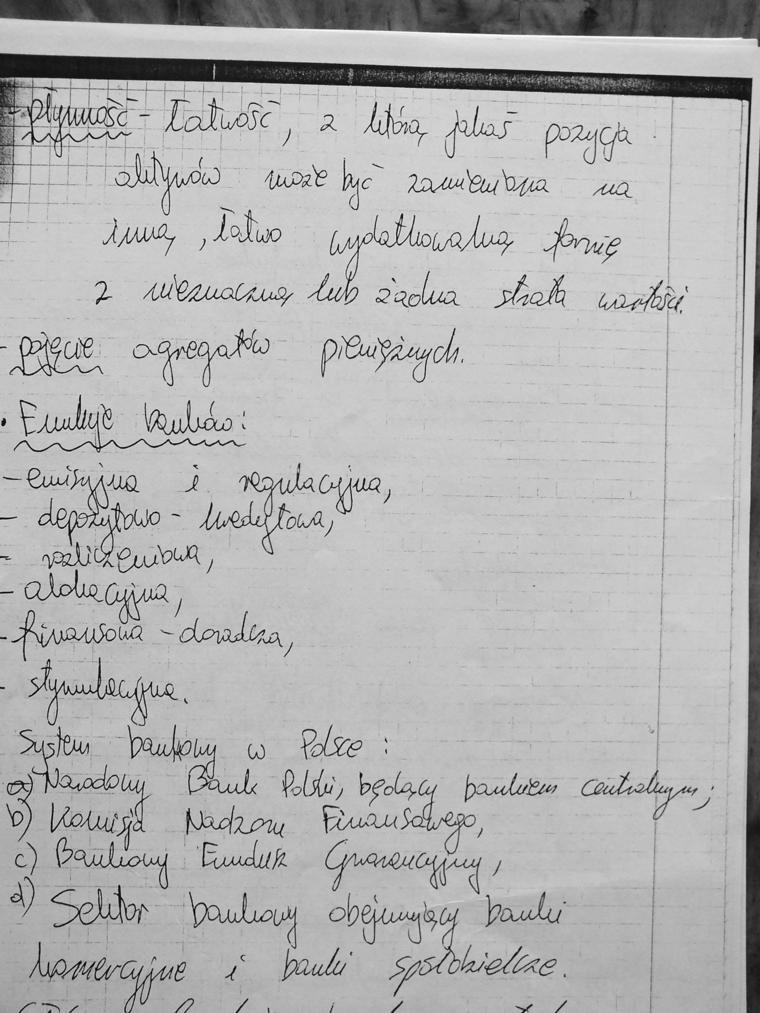 - płynność - łatwość, z którą jakaś pozycja
aktywów może być zamieniona na
inną, łatwo wydatkowalną formę
z nieznaczną lub żadna strata wartości.
- pojęcie agregatów pieniężnych.
• Funkcje banków:
- emisyjna i regulacyjna,
- depozytowo - kredytowa,
- rozliczeniowa,
- alokacyjna,
- finansowa - doradcza,
- stymulacyjna.
System bankowy w Polsce:
a) Narodowy Bank Polski, będący bankiem centralnym;
b) Komisja Nadzoru Finansowego,
c) Bankowy Fundusz Gwarancyjny,
d) Sektor bankowy obejmujący banki
komercyjne i banki spółdzielcze.